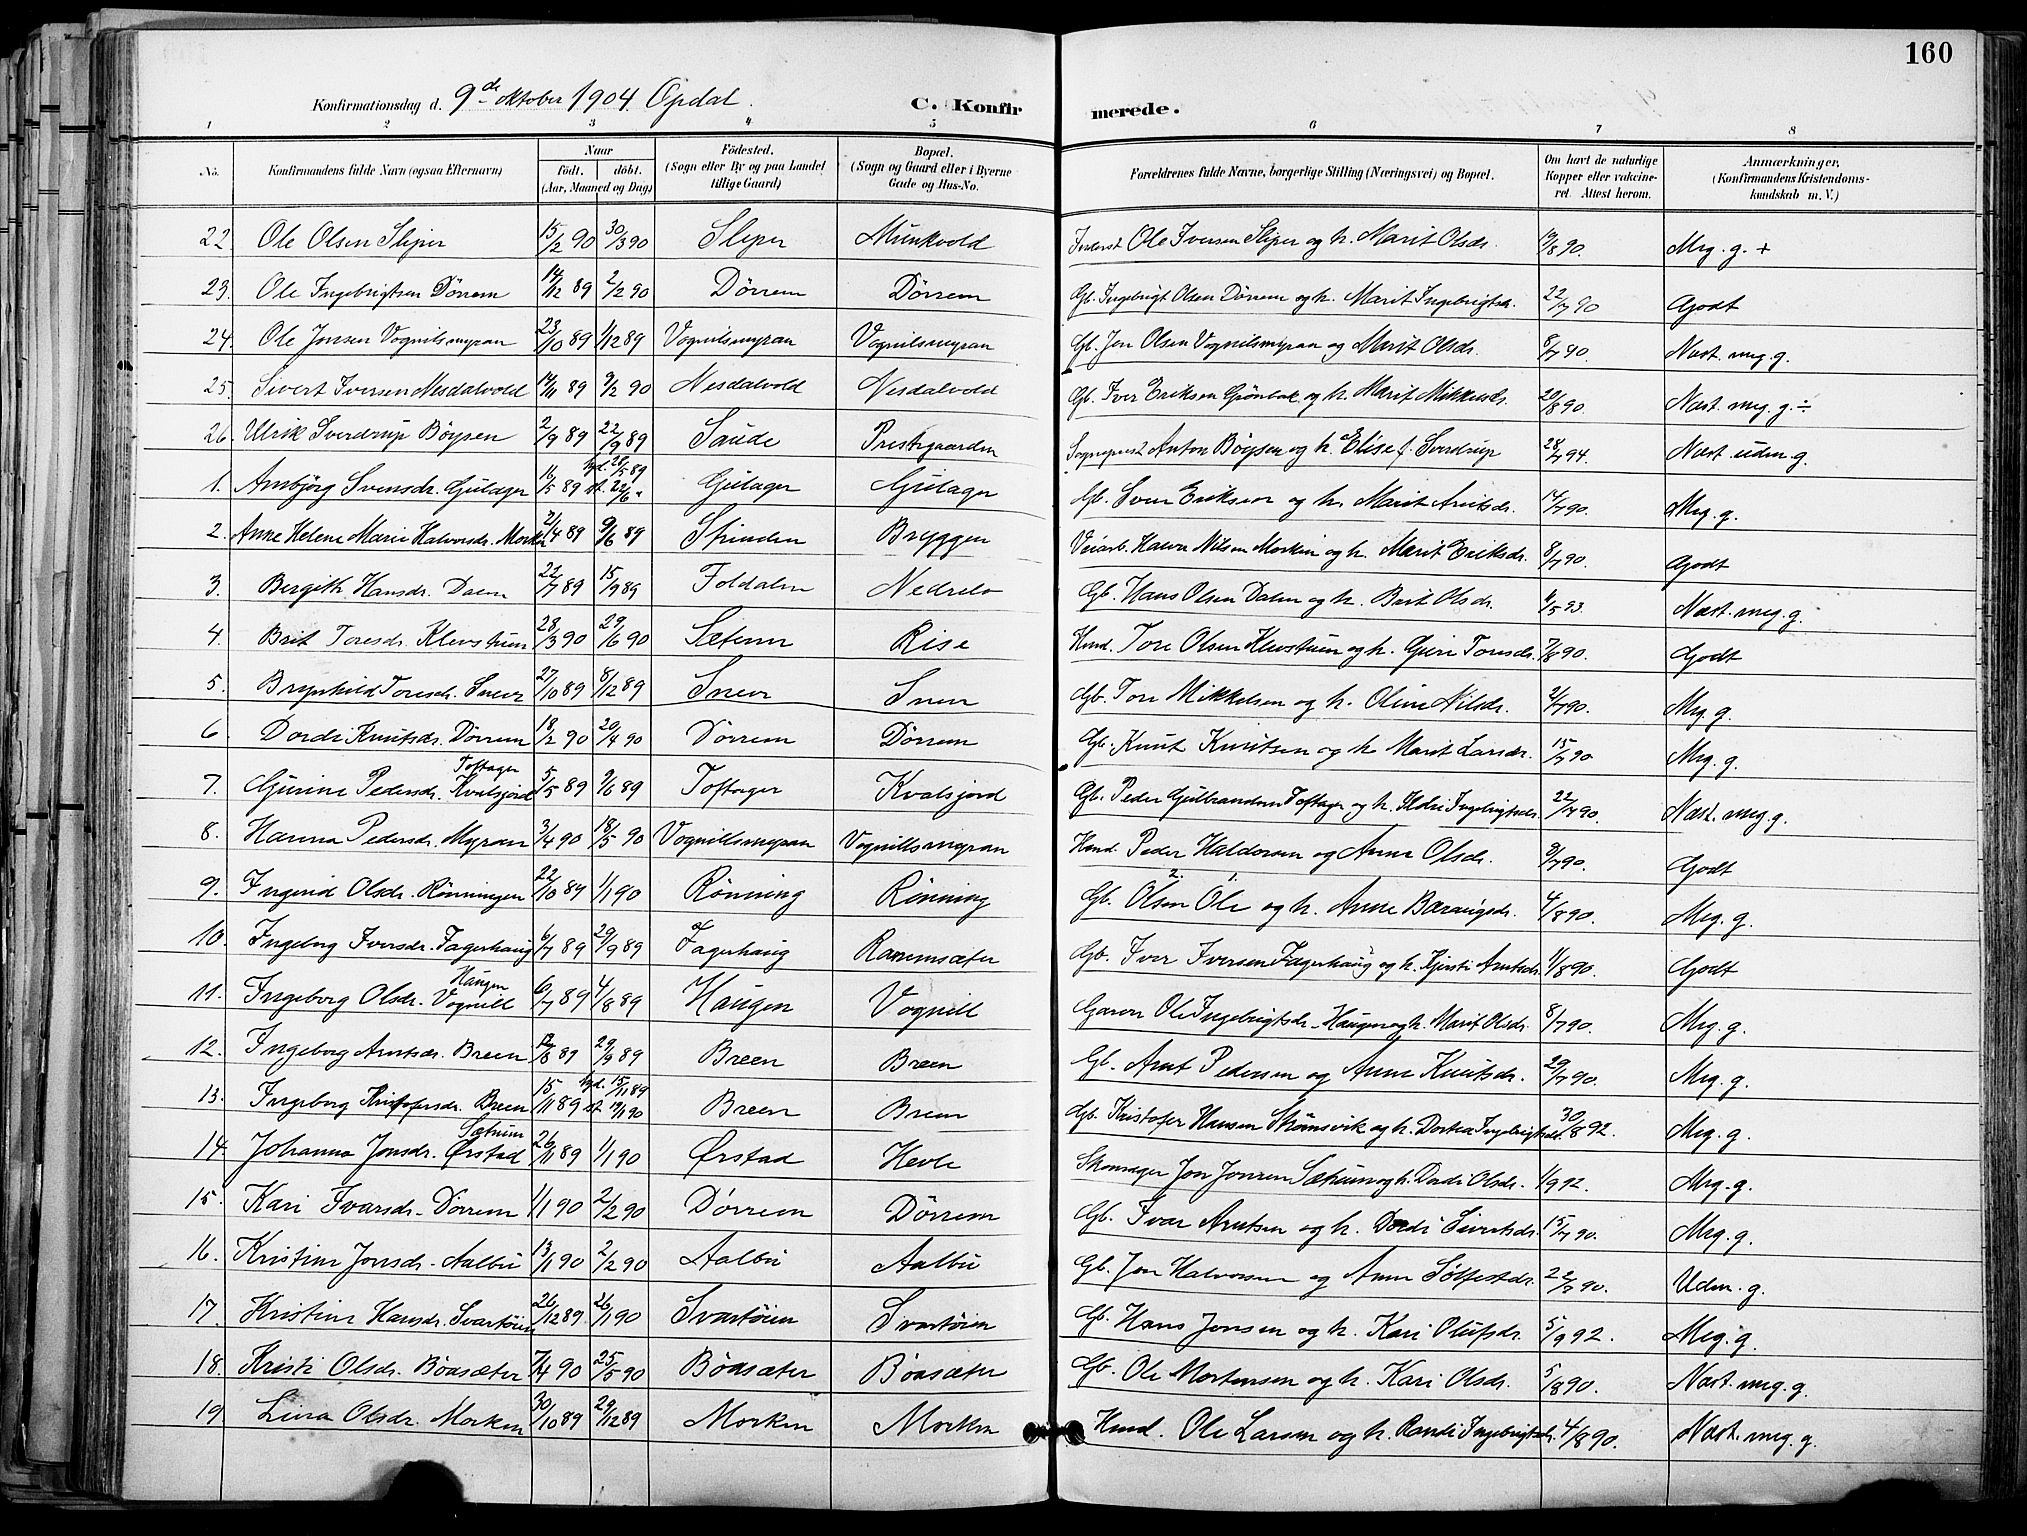 160
Konfirmationsdag d. 9de oktober 1904 Opdal. C. Konfirmerede.
1 2 3 4 5 6 7 8
No. Konfirmandens fulde Navn (ogsaa Efternavn) Naar født. døbt. (Aar, Maaned og Dag) Fødested. (Sogn eller By og paa Landet tillige Gaard) Bopæl. (Sogn og Gaard eller i Byerne Gade og Hus-No. Forældrenes fulde Navne, borgerlige Stilling (Næringsvei) og Bopæl. Om havt de naturlige Kopper eller vakcineret. Attest herom. Anmærkninger, (Konfirmandens Kristendomskundskab m. V.)
22 Ole Olsen Sliper 15/2 90 30/3 90 Sliper Munkvold Inderst Ole Iversen Sliper og h. Marit Olsdr. 17/8 90. Mrg. g. +
23. Ole Ingebrigtsen Dörrem 14/12 89 2/2 90 Dörrem Dörrem Gb. Ingebrigt Olsen Dörrem og h. Marit Ingebrigtsd. 22/7 90 Godt
24. Ole Jonsen Vognilsmyran 23/10 89 1/12 89 Vognilsmyran Vognilsmyran Gb. Jon Olsen Vognilsmyran og Marit Olsdr. 8/7 90. Næst. meg. g.
25. Sivert Iversen Nesdalvold 14/11 89 9/2 90 Nesdalvold Nesdalvold Gb. Iver Eriksen Grönbak og h. Marit Mikkelsdr. 20/8 90. Næst. meg. g. ÷
26. Ulrik Sverdrup Böysen 2/9 89 22/9 89 Saude Prestegaarden Sogneprest Anton Böysen og h. Elise f. Sverdrup 28/7 94. Næst udm. g.
1. Arnbjörg Svensdr. Gulager 16/5 89 hjd. 28/5 89 st. 22/6 " Gulager Gulager Gb. Sven Eriksen og h. Marit Arntsdr. 14/7 90. Mrg. g.
2. Anne Helene Marie Halvorsdr. Morken 21/4 89 9/6 89 Stuen Bryggen Veiarb. Halvor Nilsen Morken og h. Marit Eriksdr. 8/7 90. Godt
3. Bergith Hansdr. Dalen 22/7 89 15/9 89 Foldalen Nedrelo Gb. Hans Olsen Dalen og h. Berit Olsdr. 6/5 93. Næst. meg. g.
4. Brit Toresdr. Klevstuen 28/3 90 29/6 90 Sæteren Rise Hmd. Tore Olsen Klevstuen og h. Guri Toresdr. 7/8 90. Godt
5. Brynhild Toresdr. Snever 27/10 89 8/12 89 Snever Snever Gb. Tore Mikkelsen og h. Oline Nilsdr. 2/7 90. Mrg. g.
6 Dordi Knutsdr. Dörrem 18/2 90 20/4 90 Dörrem Dörrem Gb. Knut Knutsen og h. Marit Larsdr. 15/7 90. Mrg. g.
7. Gurine Pedersdr. Toftager Kvalsjord 5/5 89 9/6 89 Toftager Kvalsjord Gb. Peder Gulbrandsen Toftager og h. Ildri Ingebrigtsdr. 22/7 90. Næst. meg. g.
8. Hanna Pedersdr. Myran 3/4 90 18/5 90 Vognillsmyran Vognillsmyran Hmd. Peder Haldorsen og Anne Olsdr. 9/7 90. Godt
9. Ingerid Olsdr. Rönningen 22/10 89 1/1 90 Rönning Rönning Gb. 2. Olsen 1. Ole og h. Anne Bæraugsdr. 4/8 90. Mrg. g.
10. Ingeborg Iversdr. Fagerhaug 6/7 89 29/9 89 Fagerhaug Ramemsæter Gb. Iver Iversen Fagerhaug og h. Kjersti Arntsdr. 1/8 90. Godt
11. Ingeborg Olsdr. Haugen Vognill 6/7 89 4/8 89 Haugen Vognill Garver Ole Ingebrigtsdr. Haugen og h. Marit Olsdr. 8/7 90. Mrg. g.
12. Ingeborg Arntsdr. Breen 12/8 89 29/9 89 Breen Breen Gb. Arnt Pedersen og Anne Knutsdr. 29/7 90. Mrg. g.
13. Ingeborg Kristofersdr. Breen 15/11 89 hjd. 15/11 89 st. 19/1 90 Breen Breen Gb. Kristofer Hansen Strömsvik og h. Dortea Ingebrigtsdr. 30/8 92. Mrg. g.
14. Johanna Jonsdr. Sætrum Ørstad 26/11 89 1/1 90 Ørstad Hevle Skomager Jon Jonsen Sætrum og h. Dordi Olsdr. 1/9 92. Mrg. g.
15. Kari Ivarsdr. Dörrem 1/1 90 2/2 90 Dörrem Dörrem Gb. Ivar Arntsen og h. Dordi Sivertsdr. 15/7 90. Mrg. g.
16. Kristine Jonsdr. Aalbu 13/1 90 2/2 90 Aalbu Aalbu Gb. Jon Halvorsen og Anne Sölfestdr. 22/7 90. Udm. g.
17. Kristine Hansdr. Svartöien 26/12 89 26/1 90 Svartöien Svartöien Gb. Hans Jonsen og h. Kari Olufsdr. 5/9 92. Mrg. g.
18. Kristi Olsdr. Böasæter 7/4 90 25/5 90 Böasæter Böasæter Gb. Ole Mortensen og h. Kari Olsdr. 5/8 90. Næst. meg. g.
19 Lina Olsdr. Morken 30/10 89 29/12 89 Morken Morken Hmd. Ole Larsen og h. Randi Ingebrigtsdr. 4/8 90. Næst. meg. g.